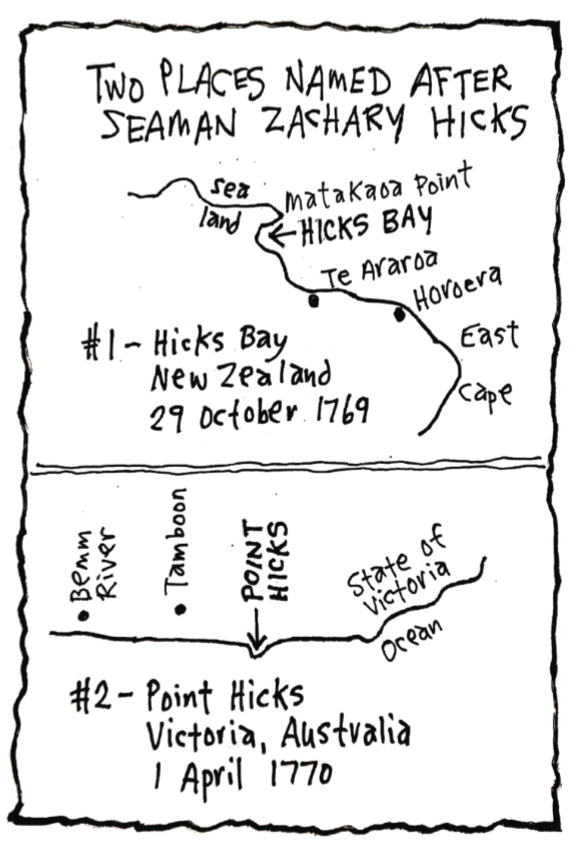 TWO PLACES NAMED AFTER
SEAMAN ZACHARY HICKS
sea
land
Matakaoa Point
HICKS BAY
Te Araroa
Horoera
East
Cape
#1 - Hicks Bay
New Zealand
29 October 1769
Bemm
River
Tamboon
POINT
HICKS
State of
Victoria
Ocean
#2 - Point Hicks
Victoria, Australia
1 April 1770